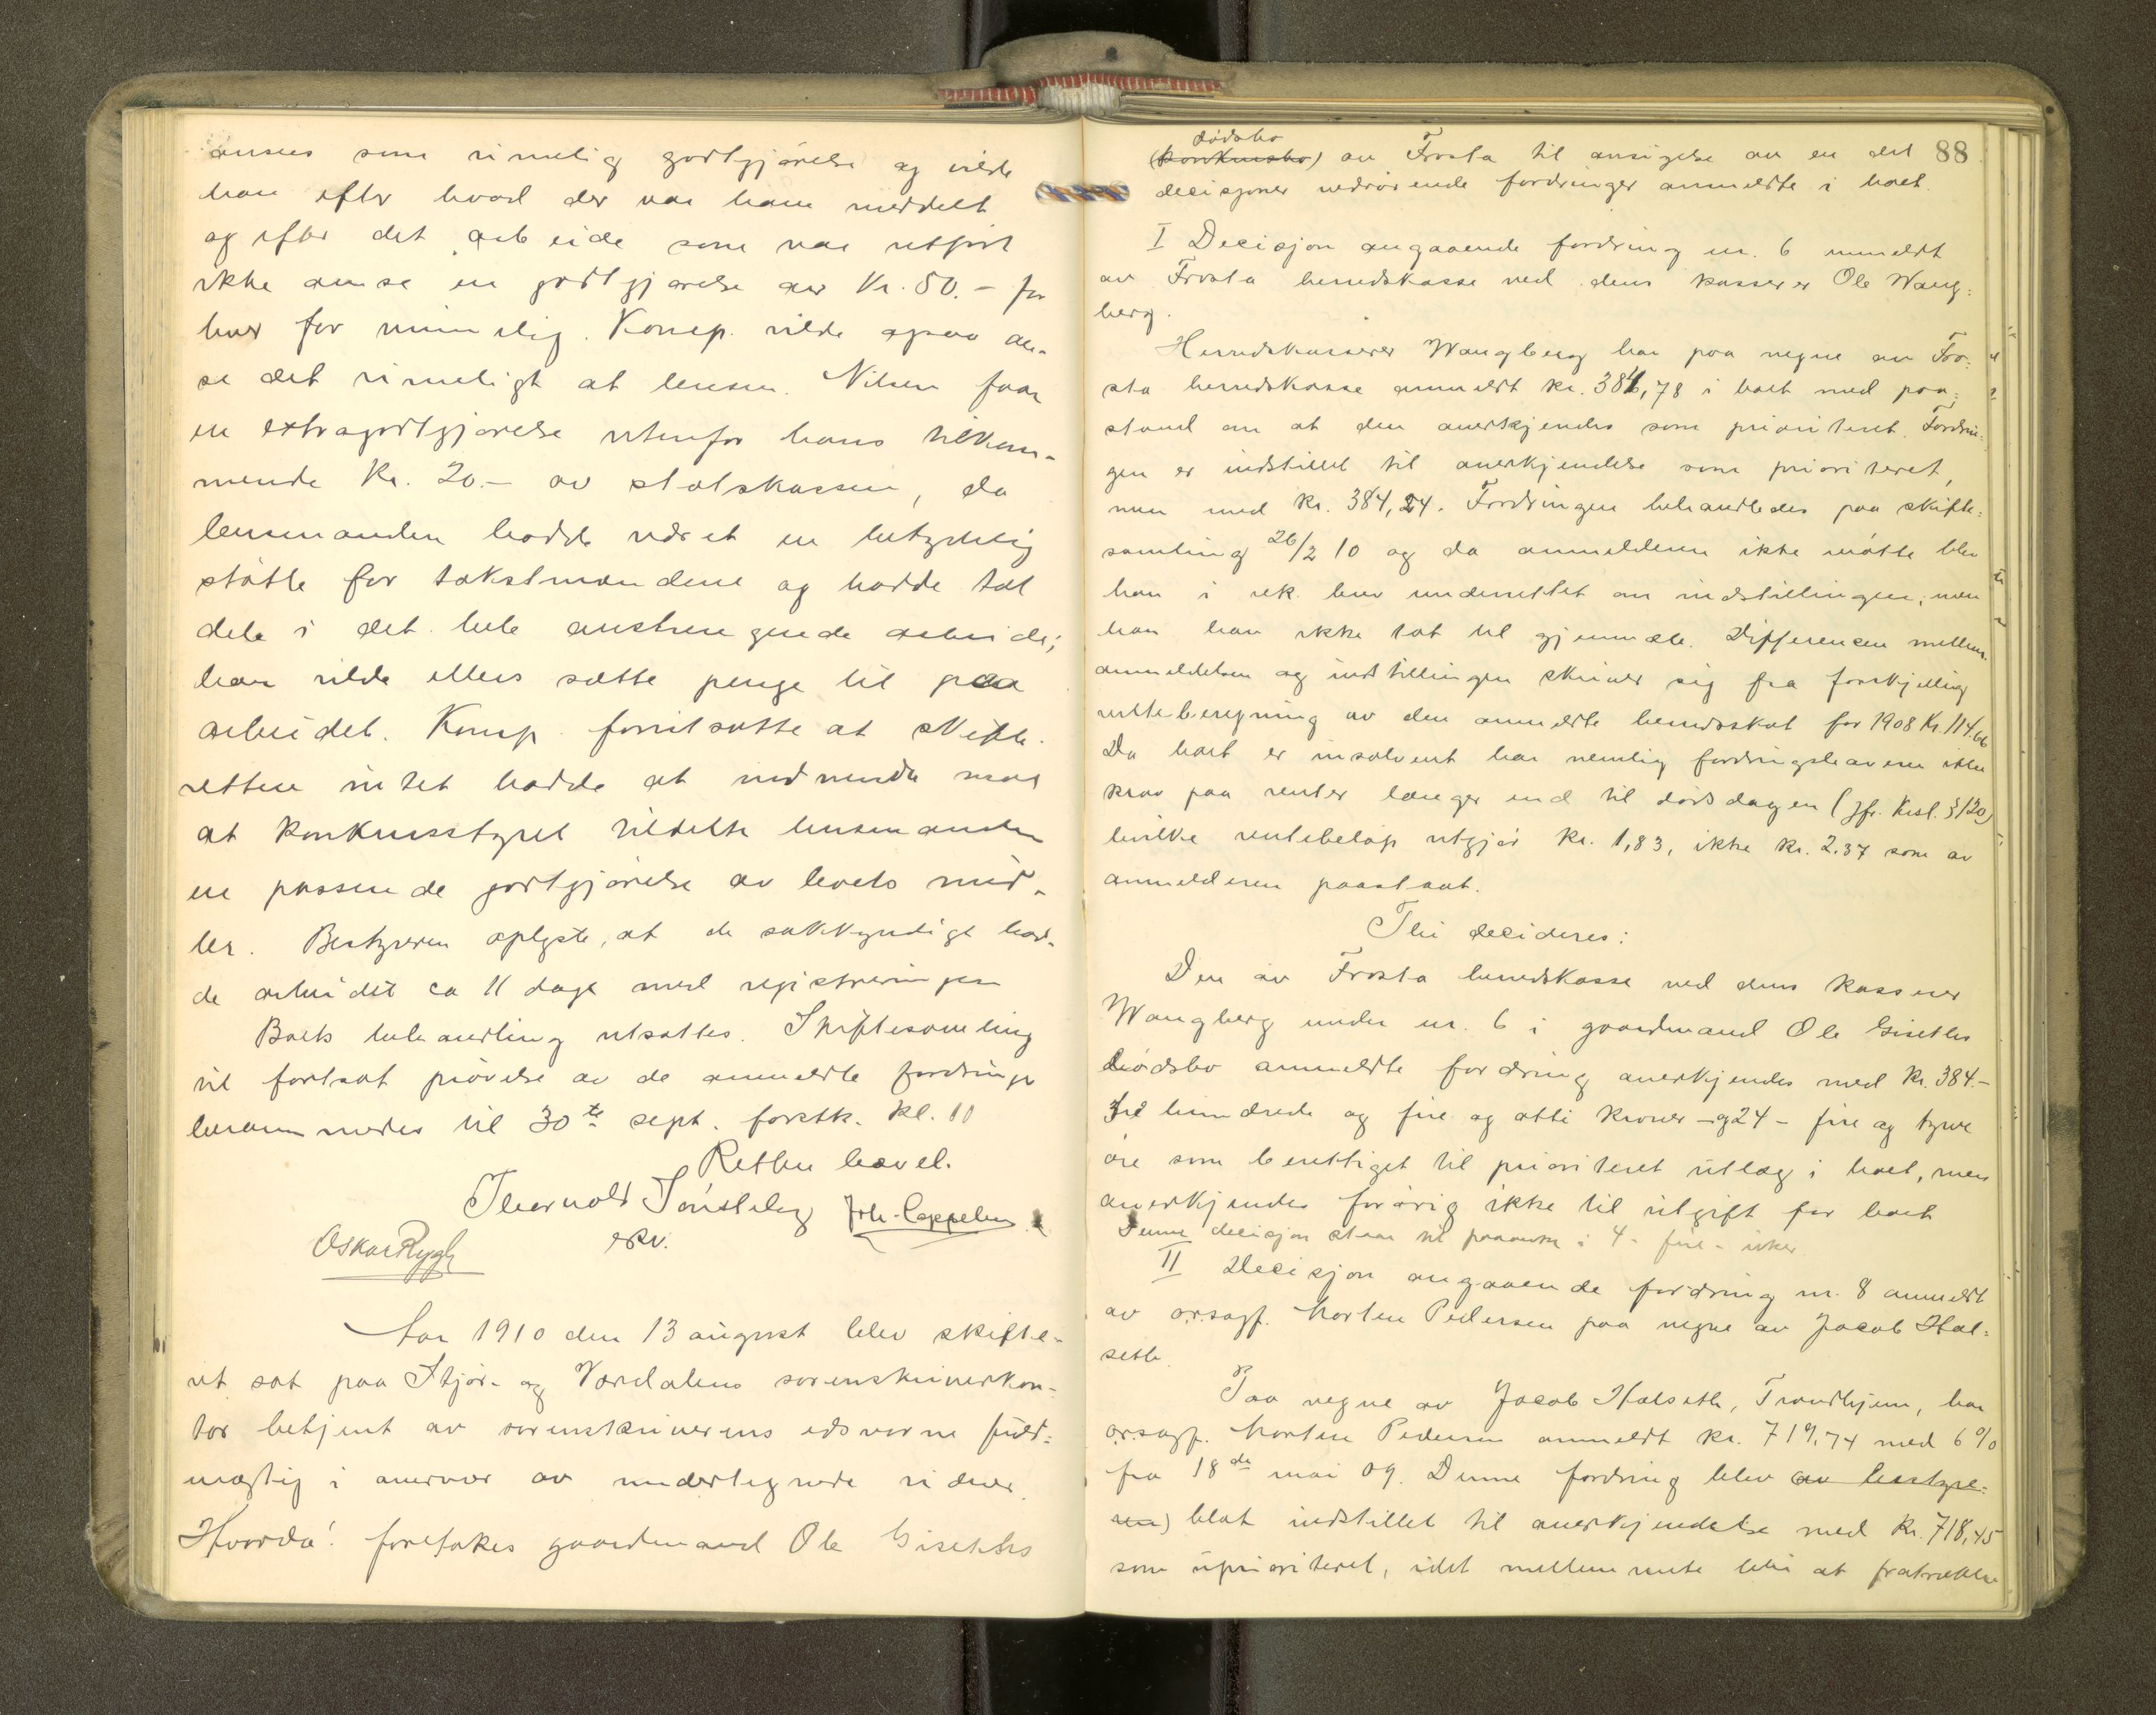 ansees som rimelig godtgjørelse og vilde
han efter hvad der var ham meddelt
og efter det arbeide som var utført
ikke anse en godtgjørelse av Kr. 50.- for
hver for urimelig. Komp. vilde ogsaa an-
se det rimeligt at lensm. Nilsen faar
en extragodtgjørelse utenfor hans tilkom-
mende Kr. 20.- av statskassen, da
lensmanden hadde været en betydelig
støtte for takstmændene og hadde tat
dels i det hele anstrengende arbeide;
han vilde ellers sætte penge til paa
arbeidet. Komp. forutsatte at skifte-
retten intet hadde at indvende mot
at konkursstyret tildelte lensmanden
en passende godtgjørelse av boets mid-
ler. Bestyreren oplyste, at de sakkyndige had-
de arbeidet ca 11 dage med registreringen
Boets behandling utsattes. Skiftesamling
til fortsat prøvelse av de anmeldte fordringer
berammedes til 30te sept. førstk. kl. 11
Retten hævet.
Thorvald Joh. Cappelen
Oskar Rygh
Aar 1910 den 13 august blev skifte-
ret sat paa Stjør- og Værdalens sorenskriverkon-
tor betjent av sorenskriverens edsvorne fuld-
mægtig i overvær av undertegnede vidner.
Hvorda! foretokes gaardmand Ole Giseths
88
dødsbo
(konkursbo) av Frosta til avsigelse av en del
decisjoner vedrørende fordringer anmeldte i boet.
I Decisjon angaaende fordring nr. 6 anmeldt
av Frosta herredskasse ved dens kasserer Ole Wang-
berg.
Herredskasserer Wangberg har paa vegne av Fro-
sta herredskasse anmeldt kr. 384,78 i boet med paa-
stand om at den anerkjendes som prioritert. Fordrin-
gen er indstillet til anerkjendelse som prioriteret,
men med kr. 384,24. Fordringen behandledes paa skifte-
samling 26/2 10 og da anmelderen ikke møtte blev
han i rek. brev underrettet om indstillingen; men
han har ikke tat til gjenmæle. Differencen mellem
anmeldelsen og indstillingen skriver sig fra forskjellig
renteberegning av den anmeldte herredsskat for 1908 Kr. 114.66
Da boet er insolvent har nemlig fordringshaveren ikke
krav paa renter længer end til dødsdagen (jfr. Kksl. § 120)
hvilke rentebeløp utgjør kr. 1,83, ikke kr. 2.37 som av
anmelderen paastaat.
Thi decideres:
Den av Frosta herredskasse ved dens kasserer
Wangberg under nr. 6 i gaardmand Ole Giseths
dødsbo anmeldte fordring anerkjendes med Kr. 384.-
tre hundrede og fire og otti kroner - og 24 - fire og tyve
øre som berettiget til prioriteret utlæg i boet, men
anerkjendes forøvrig ikke til utgift for boet
Denne decisjon staar til paaanke i 4 - fire - uker.
II Decisjon angaaende fordring nr. 8 anmeldt
av o.r.sagf. Morten Pedersen paa vegne av Jacob Hal-
seth.
Paa vegne av Jacob Halseth, Trondhjem, har
o.r.sagf. Morten Pedersen anmeldt kr. 719,74 med 6%
fra 18de mai 09. Denne fordring blev (av bestyre-
ren) blot indstillet til anerkjendelse med kr. 718,45
som uprioriteret, idet mellem rente blir at fratrække